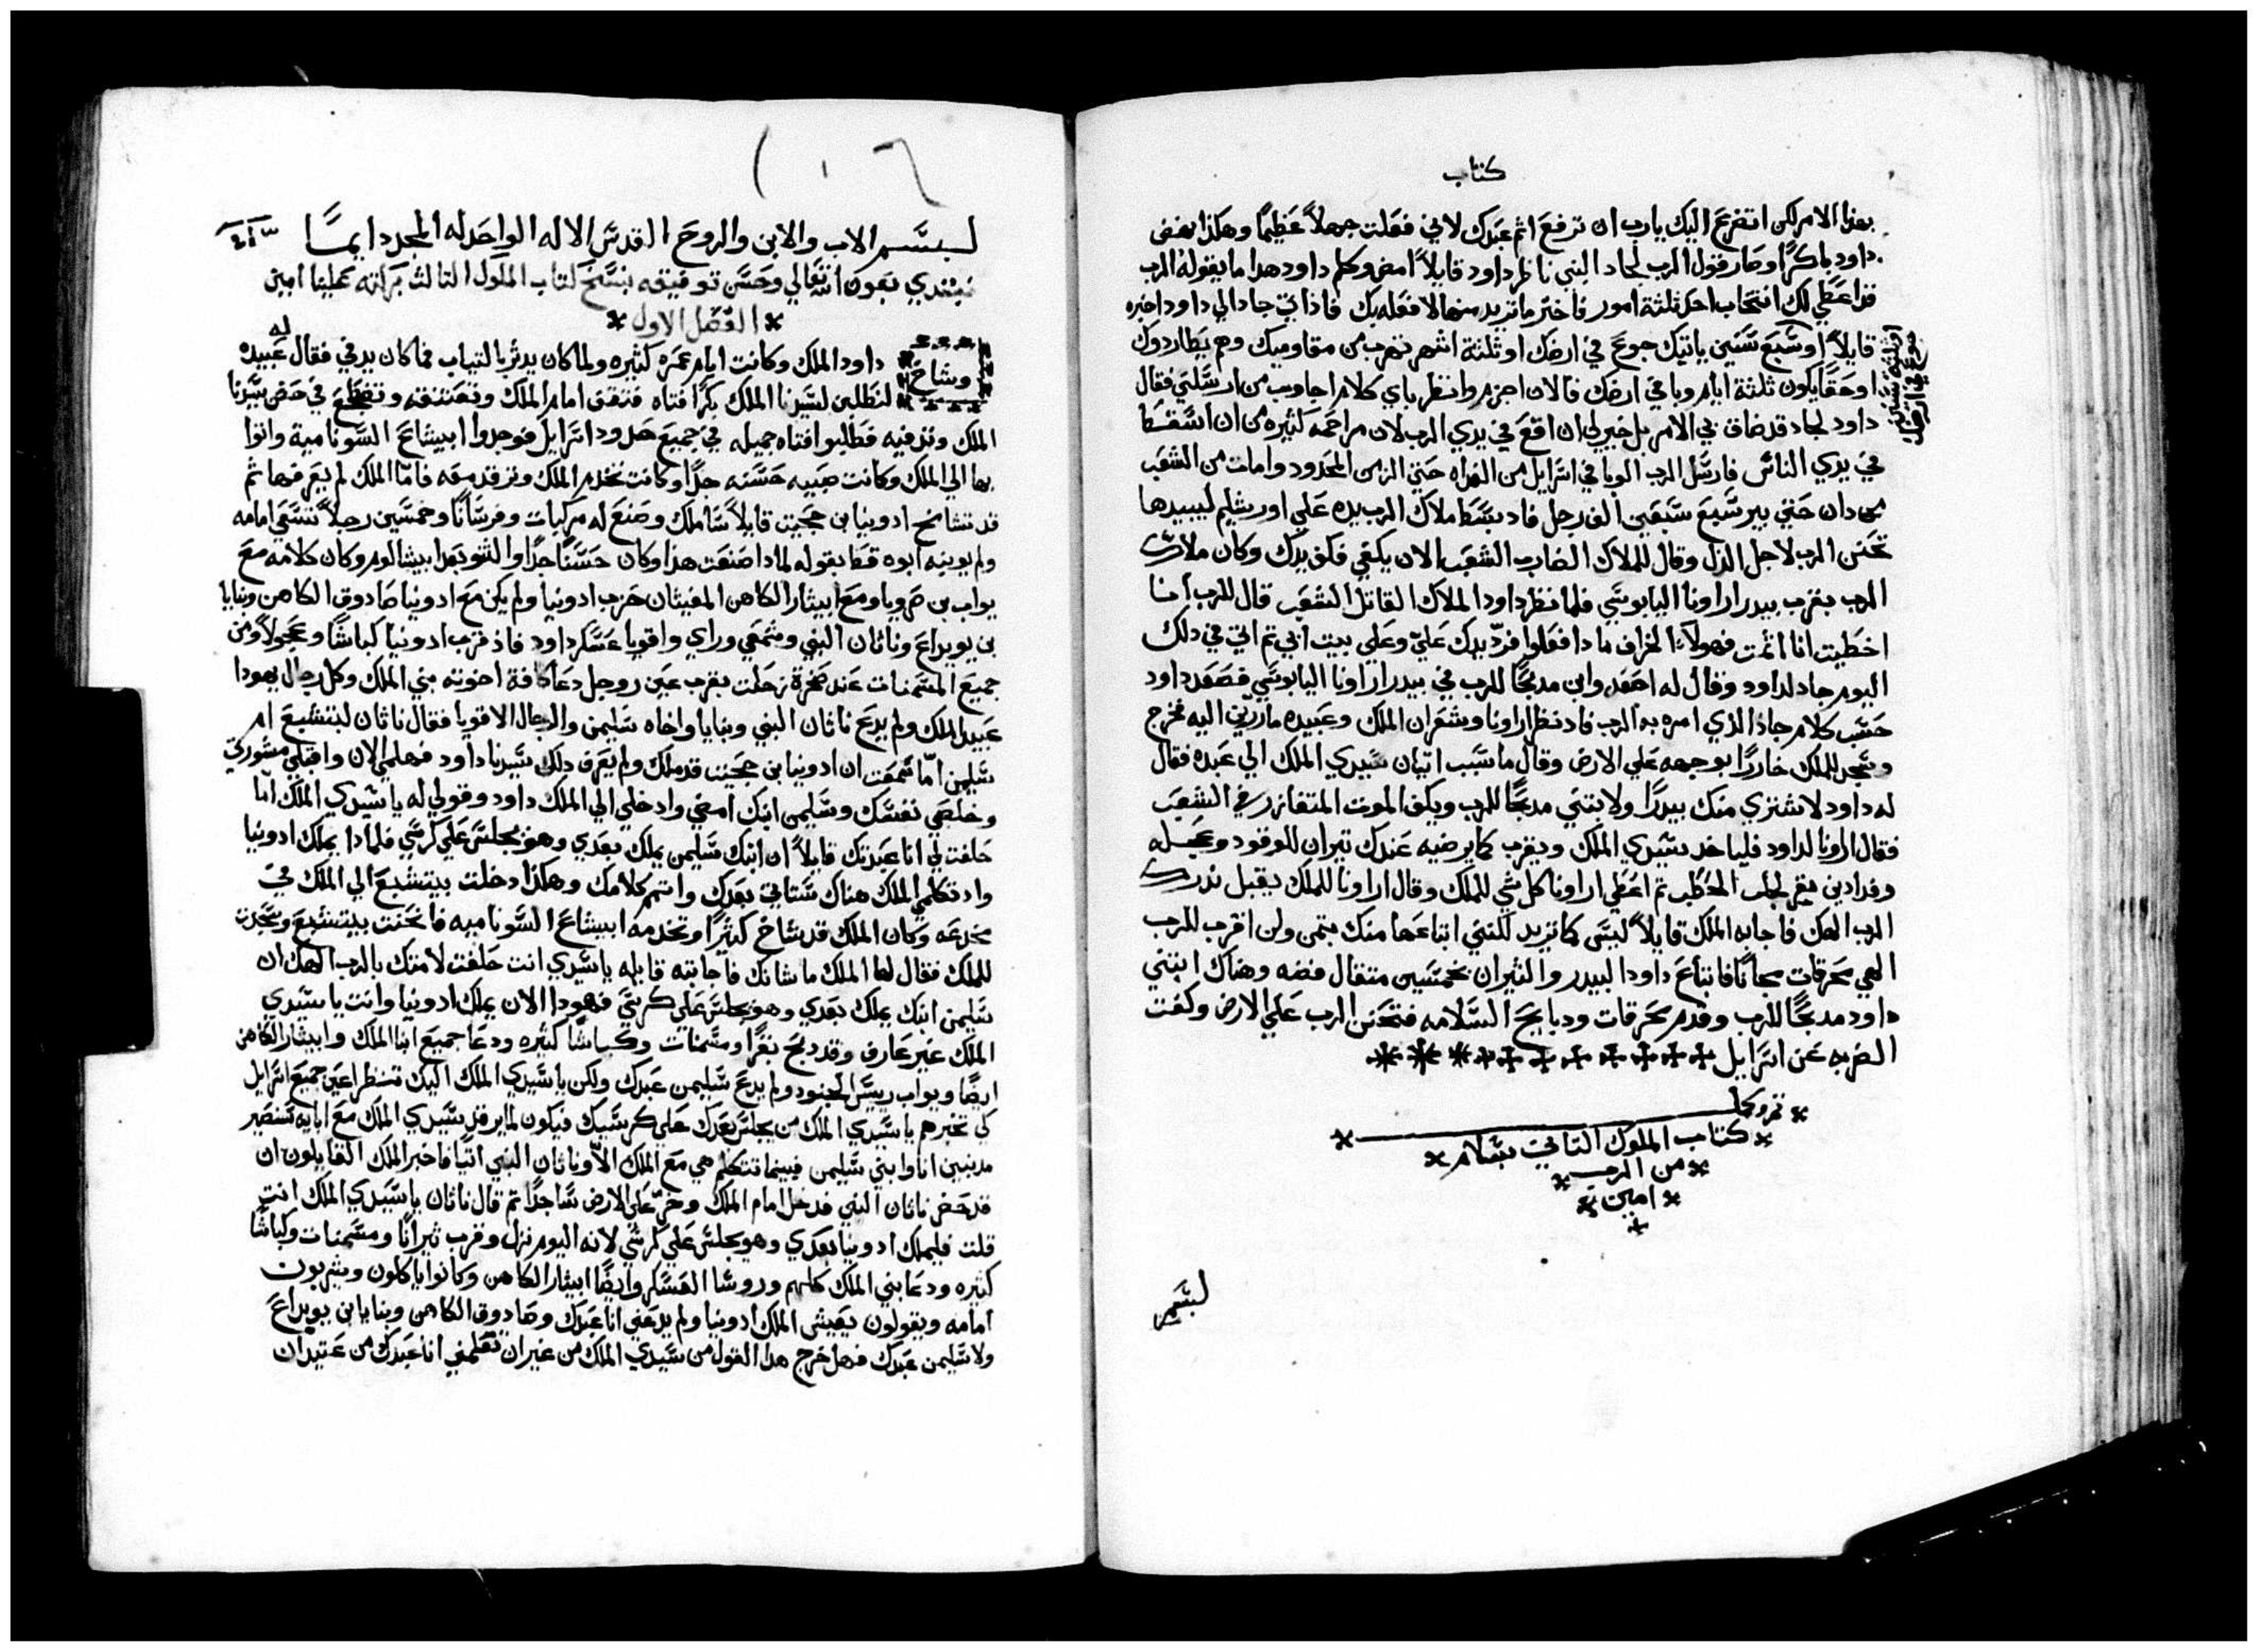 كتاب
بهذا الامر لكن اتضرع اليك يارب ان ترفع اثم عبدك لاني فعلت جهلاً عظيمًا وهكذا نهض
داود باكرًا وصار قول الرب لجاد النبي ناظر داود قايلاً امض وكلم داود هدا ما يقوله الرب
قد اعطي لك انتخاب احد ثلثة امور فاختر ما تريد منها لافعله بك فاذ اتي جاد الي داود اخبره
قايلاً او سبع سنين ياتيك جوع في ارضك او ثلثة اشهر تهرب من مقاوميك وهم يطاردوك
او حقًا يكون ثلثة ايام وبا في ارضك فالان اجزم وانظر باي كلام اجاوب من ارسلني فقال
داود لجاد قد ضاق بي الامر بل خير لي ان اقع في يدي الرب لان مراحمه كثيره من ان اسقط
في يدي الناس فارسل الرب الوبا في اسرايل من الغداه حتي الزمن المحدود وامات من الشعب
من دان حتي بير سبع سبعين الف رجل فاد بسط ملاك الرب يده علي اورشليم ليبيدها
تحنن الرب لاجل الذل وقال للملاك الضارب الشعب الان يكفي فكف يدك وكان ملاك
الرب بقرب بيدر اراونا اليابوسي فلما نظر داود الملاك القاتل الشعب قال للرب انا
اخطيت انا اثمت فهولاء الخراف ما دا فعلوا فردّ يدك عليّ وعلي بيت ابي ثم اتي في دلك
اليوم جاد لداود وقال له اصعد وابن مدبحًا للرب في بيدر اراونا اليابوسي فصعد داود
حسب كلام جاد الذي امره به الرب فاد نظر اراونا وشعر ان الملك وعبيده مارين اليه فخرج
وسجد للملك خاررًا بوجهه علي الارض وقال ما سبب اتيان سيدي الملك الي عبده فقال
له داود لاشتري منك بيدرًا ولابتني مدبحًا للرب ويكف الموت المتفازر في الشعب
فقال اراونا لداود فلياخد سيدي الملك ويقرب كما يرضيه عندك تيران للوقود وعجله
وفدادين بقر لجلب الحطب ثم اعطي اراونا كل شي للملك وقال اراونا للملك يقبل ندرك
الرب الهك فاجابه الملك قايلاً ليس كما تريد لكنني ابتاعها منك بتمن ولن اقرب للرب
الهي محرقات مجانًا فابتاع داود البيدر والثيران بخمسين متقال فضه وهناك ابتني
داود مدبحًا للرب وقدم محرقات ودبايح السلامه فتحنن الرب علي الارض وكفت
الضربه عن اسرايل
تم وكمل
كتاب الملوك التاني بسلام
من الرب
امين
لبسم
١٠٦
لبسم الاب والابن والروح القدس الاله الواحد له المجد دايمًا
نبتدي بعون الله تعالي وحسن توفيقه بنسخ كتاب الملوك التالث بركته علينا امين
الفصل الاول
وشاخ داود الملك وكانت ايام عمره كثيره ولما كان يدثر بالتياب فما كان يدفي فقال له عبيده
لنطلبن لسيدنا الملك بكرًا فتاه فتقف امام الملك وتحتضنه وتضطجع في حضن سيدنا
الملك وتدفيه فطلبوا فتاه جميله في جميع حدود اسرايل فوجدوا ابيشاع السونامية واتوا
بها الي الملك وكانت صبيه حسنه جدًا وكانت تخدم الملك وترقد معه فامّا الملك لم يعرفها ثم
قد تشامخ ادونيا بن حجيت قايلاً ساملك وصنع له مركبات وفرسانًا وخمسين رجلاً تسعي امامه
ولم يوبخه ابوه قط بقوله لمادا صنعت هدا وكان حسنًا جدًا والتو بعد ابيشالوم وكان كلامه مع
يواب بن صرويا ومع ابيثار الكاهن المغيثان حزب ادونيا ولم يكن مع ادونيا صادوق الكاهن وبنايا
بن يويداع وناثان النبي وشمعي وراي واقويا عسكر داود فاذ قرب ادونيا كباشًا وعجولاً ومن
جميع المسمنات عند صخرة زحلت بقرب عين روجل دعا كافة اخوته بني الملك وكل رجال يهودا
عبيد الملك ولم يدع ناثان النبي وبنايا واخاه سليمن والرجال الاقويا فقال ناثان لبتشبع ام
سليمن امّا سمعت ان ادونيا بن حجيت قد ملك ولم يعرف دلك سيدنا داود فهلمي الان واقبلي مشورتي
وخلصي نفسك وسليمن ابنك امضي وادخلي الي الملك داود وقولي له يا سيدي الملك امّا
حلفت لي انا عبدتك قايلاً ان ابنك سليمن يملك بعدي وهو يجلس علي كرسي فلمادا يملك ادونيا
واد تكلمي الملك هناك ستاتي بعدك واتمم كلامك وهكذا دخلت بيتشبع الي الملك في
مخدعه وكان الملك قد شاخ كثيرًا وتخدمه ابيشاع السوناميه فانحنت بيتشبع وسجدت
للملك فقال لها الملك ما شانك فاجابته قايله يا سيدي انت حلفت لامتك بالرب الهك ان
سليمن ابنك يملك بعدي وهو يجلس علي كرسيَّ فهودا الان يملك ادونيا وانت يا سيدي
الملك غير عارف وقد دبح بقرًا ومسمنات وكباشًا كثيره ودعا جميع ابنا الملك وابيثار الكاهن
ايضًا ويواب رييس الجنود ولم يدع سليمن عبدك ولكن يا سيدي الملك اليك تنظر اعين جميع اسرايل
كي تخبرهم يا سيدي الملك من يجلس بعدك علي كرسيك فيكون لما يرقد سيدي الملك مع ابايه نصير
مدنبين انا وابني سليمن فبينما تتكلم هي مع الملك الّا وناثان النبي اتيًا فاخبر الملك القايلون ان
قد حضر ناثان النبي فدخل امام الملك وخرّ علي الارض ساجدًا تم قال ناثان يا سيدي الملك انت
قلت فليملك ادونيا بعدي وهو يجلس علي كرسي لانه اليوم نزل وقرب ثيرانًا ومسمنات وكباشًا
كثيره ودعا بني الملك كلهم وروسا العسكر وايضًا ابيثار الكاهن وكانوا ياكلون ويشربون
امامه ويقولون يعيش الملك ادونيا ولم يدعني انا عبدك وصادوق الكاهن وبنايا بن يويداع
ولا سليمن عبدك فهل خرج هدا القول من سيدي الملك من غير ان تعلمني انا عبدك من عتيد ان